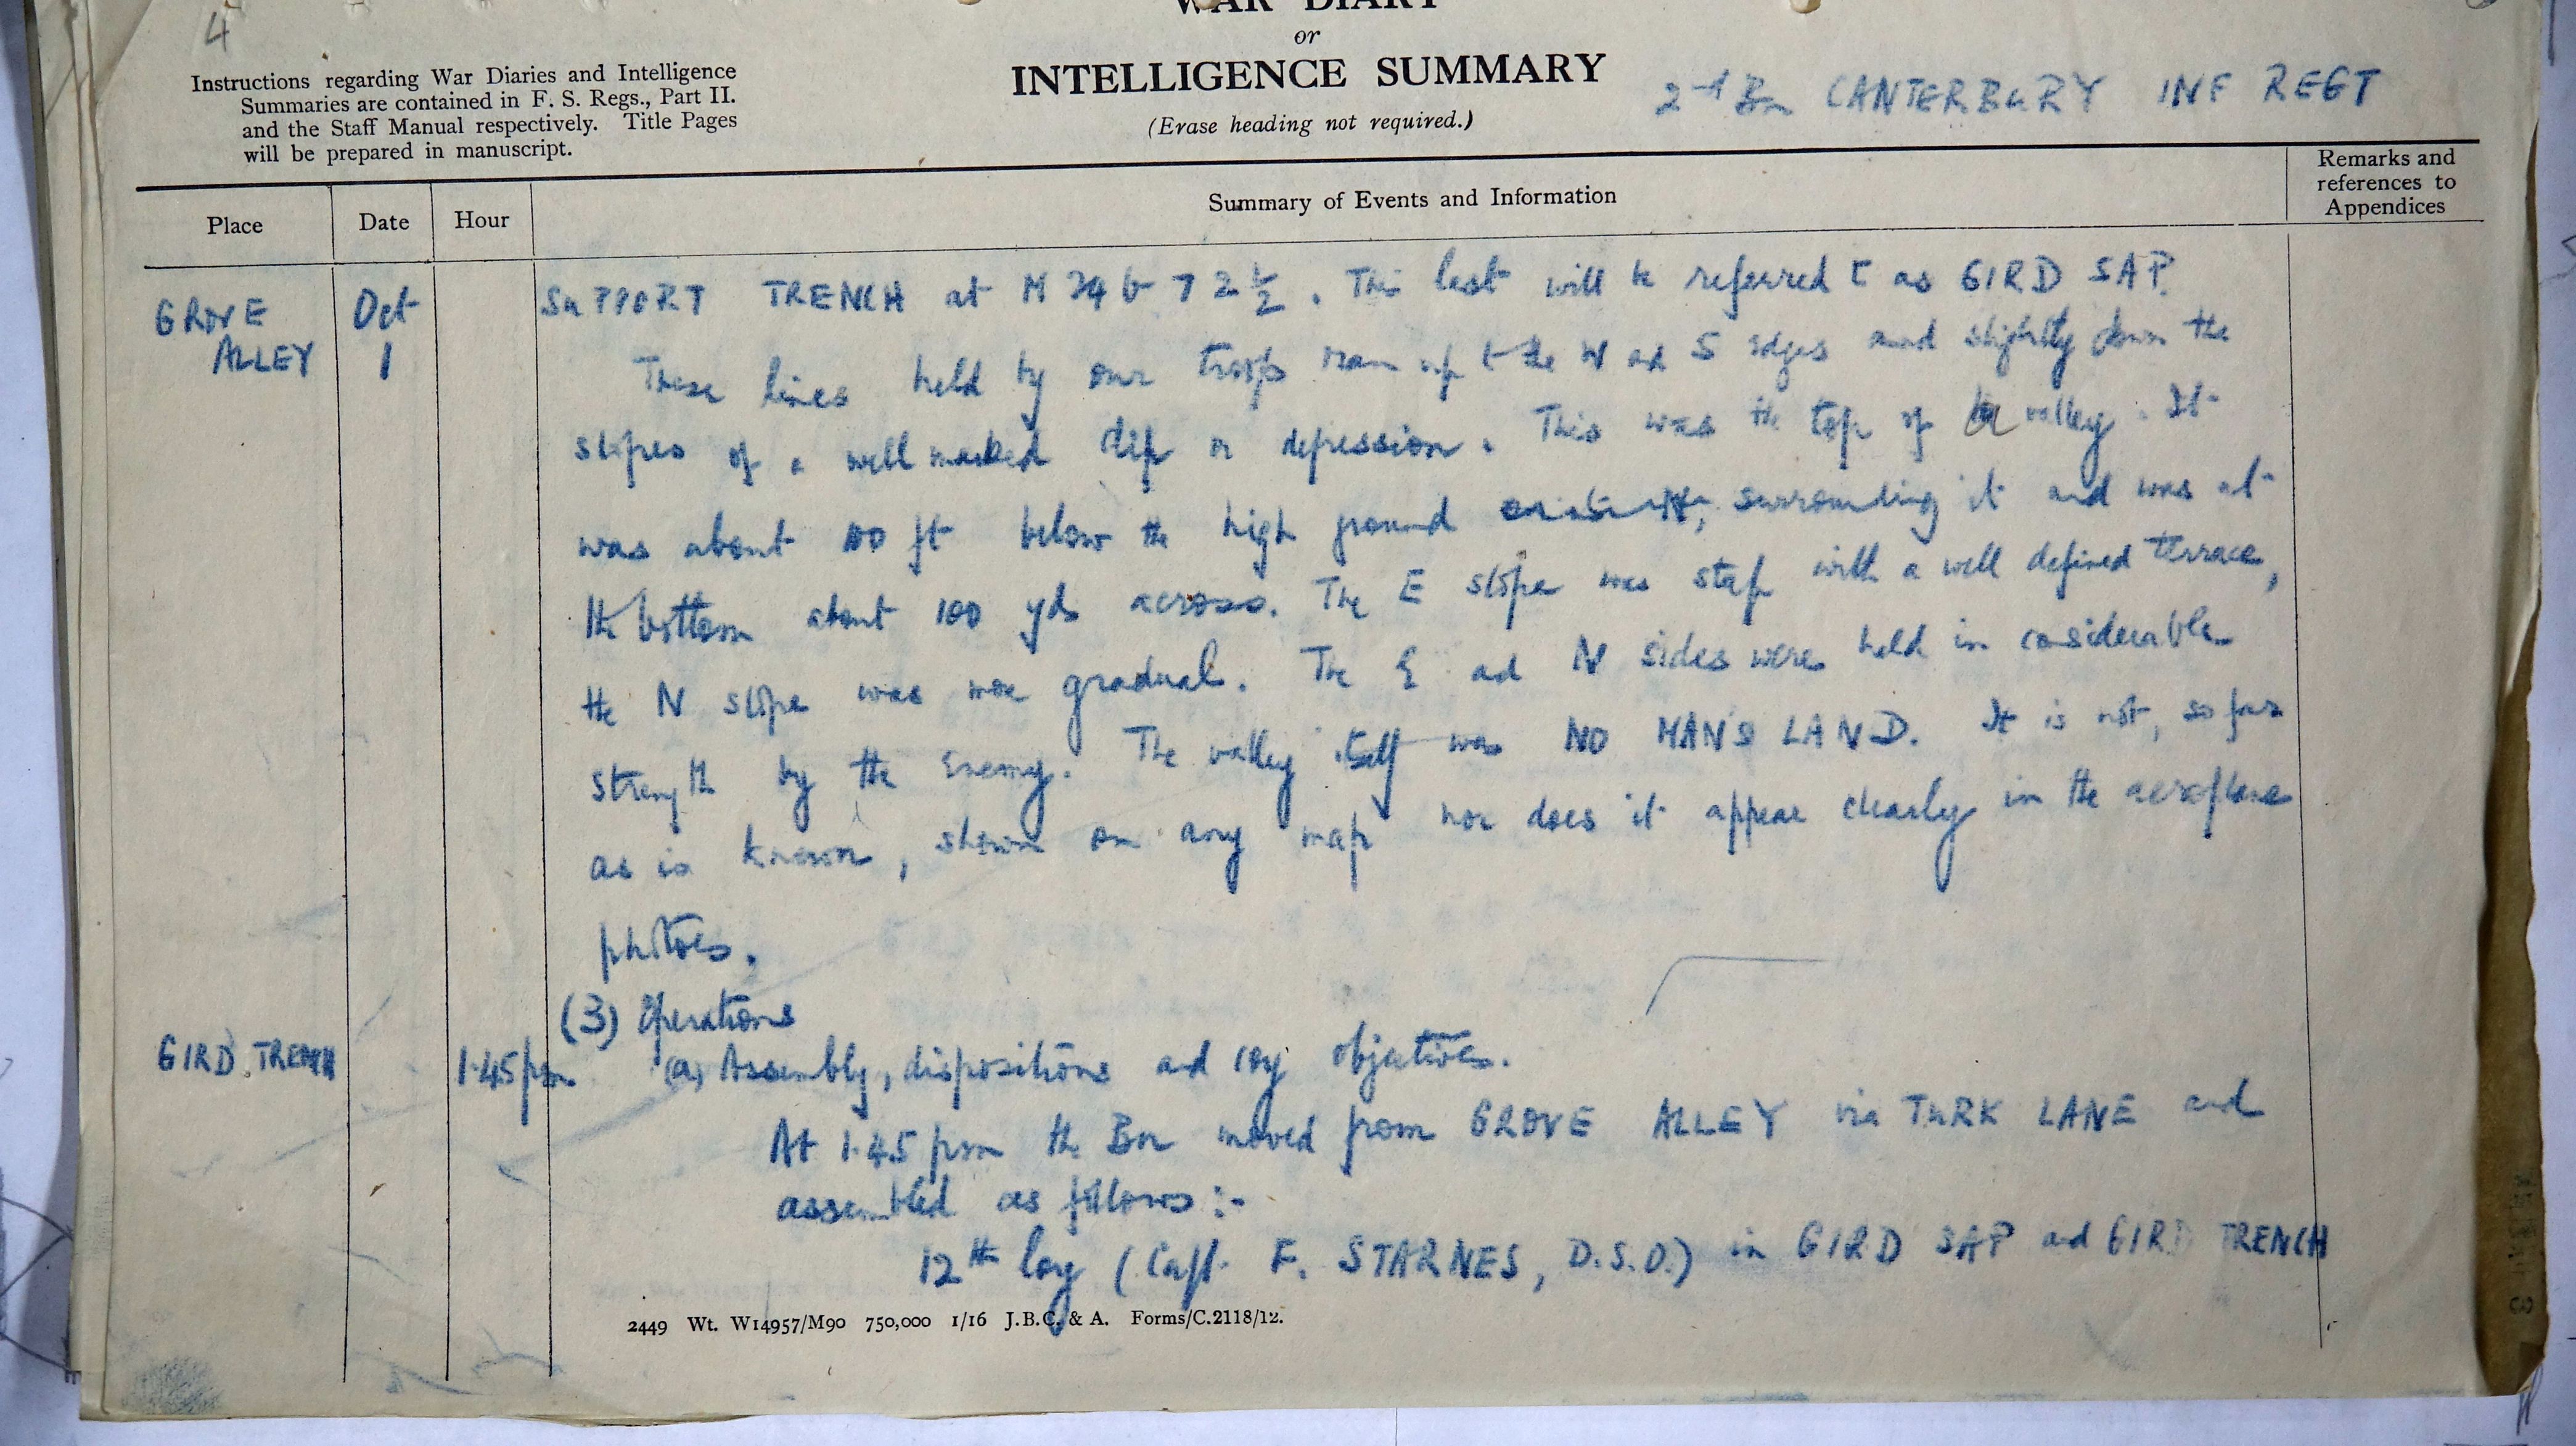 4
WAR DIARY
or
INTELLIGENCE SUMMARY
(Erase heading not required.)
Instructions regarding War Diaries and Intelligence
Summaries are contained in F. S. Regs., Part II.
and the Staff Manual respectively. Title Pages
will be prepared in manuscript.
2nd Bn CANTERBURY INF REGT
Place
Date
Hour
Summary of Events and Information
Remarks and
references to
Appendices
GROVE
ALLEY
Oct
1
SUPPORT TRENCH at M 24 b 7 2½. This last will be referred to as GIRD SAP.
These lines held by our troops ran up to the W ad S edges and slightly down the
slopes of a well marked dip or depression. This was the top of a valley. It
was about 100 ft below the high ground surrounding it and was at
the bottom about 100 yds across. The E slope was steep with a well defined terrace,
the N slope was more gradual. The E ad N sides were held in considerable
strength by the enemy. The valley itself was NO MAN'S LAND. It is not, so far
as is known, shown on any map nor does it appear clearly in the aeroplane
photoes.
(3) Operations
GIRD TRENCH
1.45 pm
(a) Assembly, dispositions ad coy objectives.
At 1.45 pm the Bn moved from GROVE ALLEY via TURK LANE and
assembled as follows :-
12th Coy (Capt. F. STARNES, D.S.O.) in GIRD SAP ad GIRD TRENCH
2449 Wt. W14957/M90 750,000 1/16 J.B.C. & A. Forms/C.2118/12.